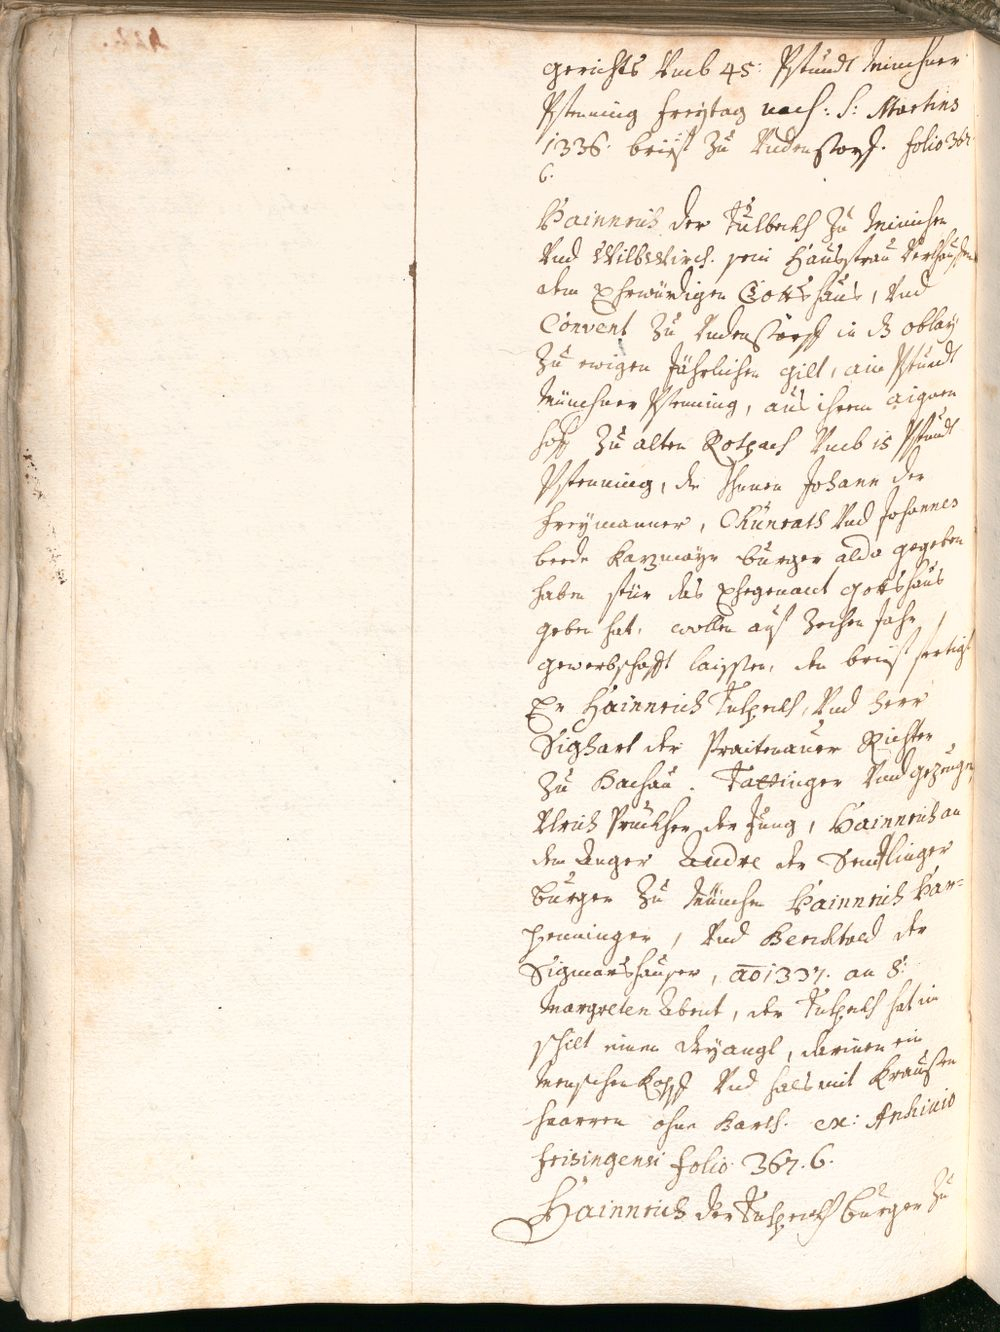 gerichts Vmb 45: Pfundt Minchner
Pfenning freÿtag nach: S: Martins
1336. brieff Zu Vndenstorff. folio 367
6.
Hainnrich der Tulbeckh Zu Minichen
Vnd Wilbirch. sein Haussfrau Verkhauffen
dem Ehrwürdigen Gottshaus, Vnd
Convent Zu Vndenstorff in di oblaÿ
Zu ewigen Jährlichen gilt, ain Pfundt
Münchner Pfenning, aus ihrem aignen
hoff Zu alten Rotpach Vmb 15 Pfundt
Pfenning, die Ihnen Johann der
freÿmanner, Chunrath Vnd Johannes
beede Kazmayr burger alda gegeben
haben für das Ehegenant gottshaus
geben hat, wollen auf Zechen Jahr
gewerbschafft laissten, den brief fertigt
Er Hainnrich Tulpeckh, Vnd herr
Sighart der Praitenauer Richter
Zu Dachau. Tattinger Vnd gezeugen
Ulrich Pruckher der Jung, Hainnrich an
dem Anger Andre der Sentlinger
burger Zu München Hainnrich Har=
penninger, Vnd Berchtold der
Sigmarshauser, ao 1337. an S:
Margreten Abent, der Tulpeckh hat im
schilt einen Dryangl, darinen ein
Menschen Kopff Vnd hals mit Krausen
haarren ohne Barth. ex: Archivio
frisingensi folio. 367. 6.
Hainnrich der Tulpeckh burger Zu